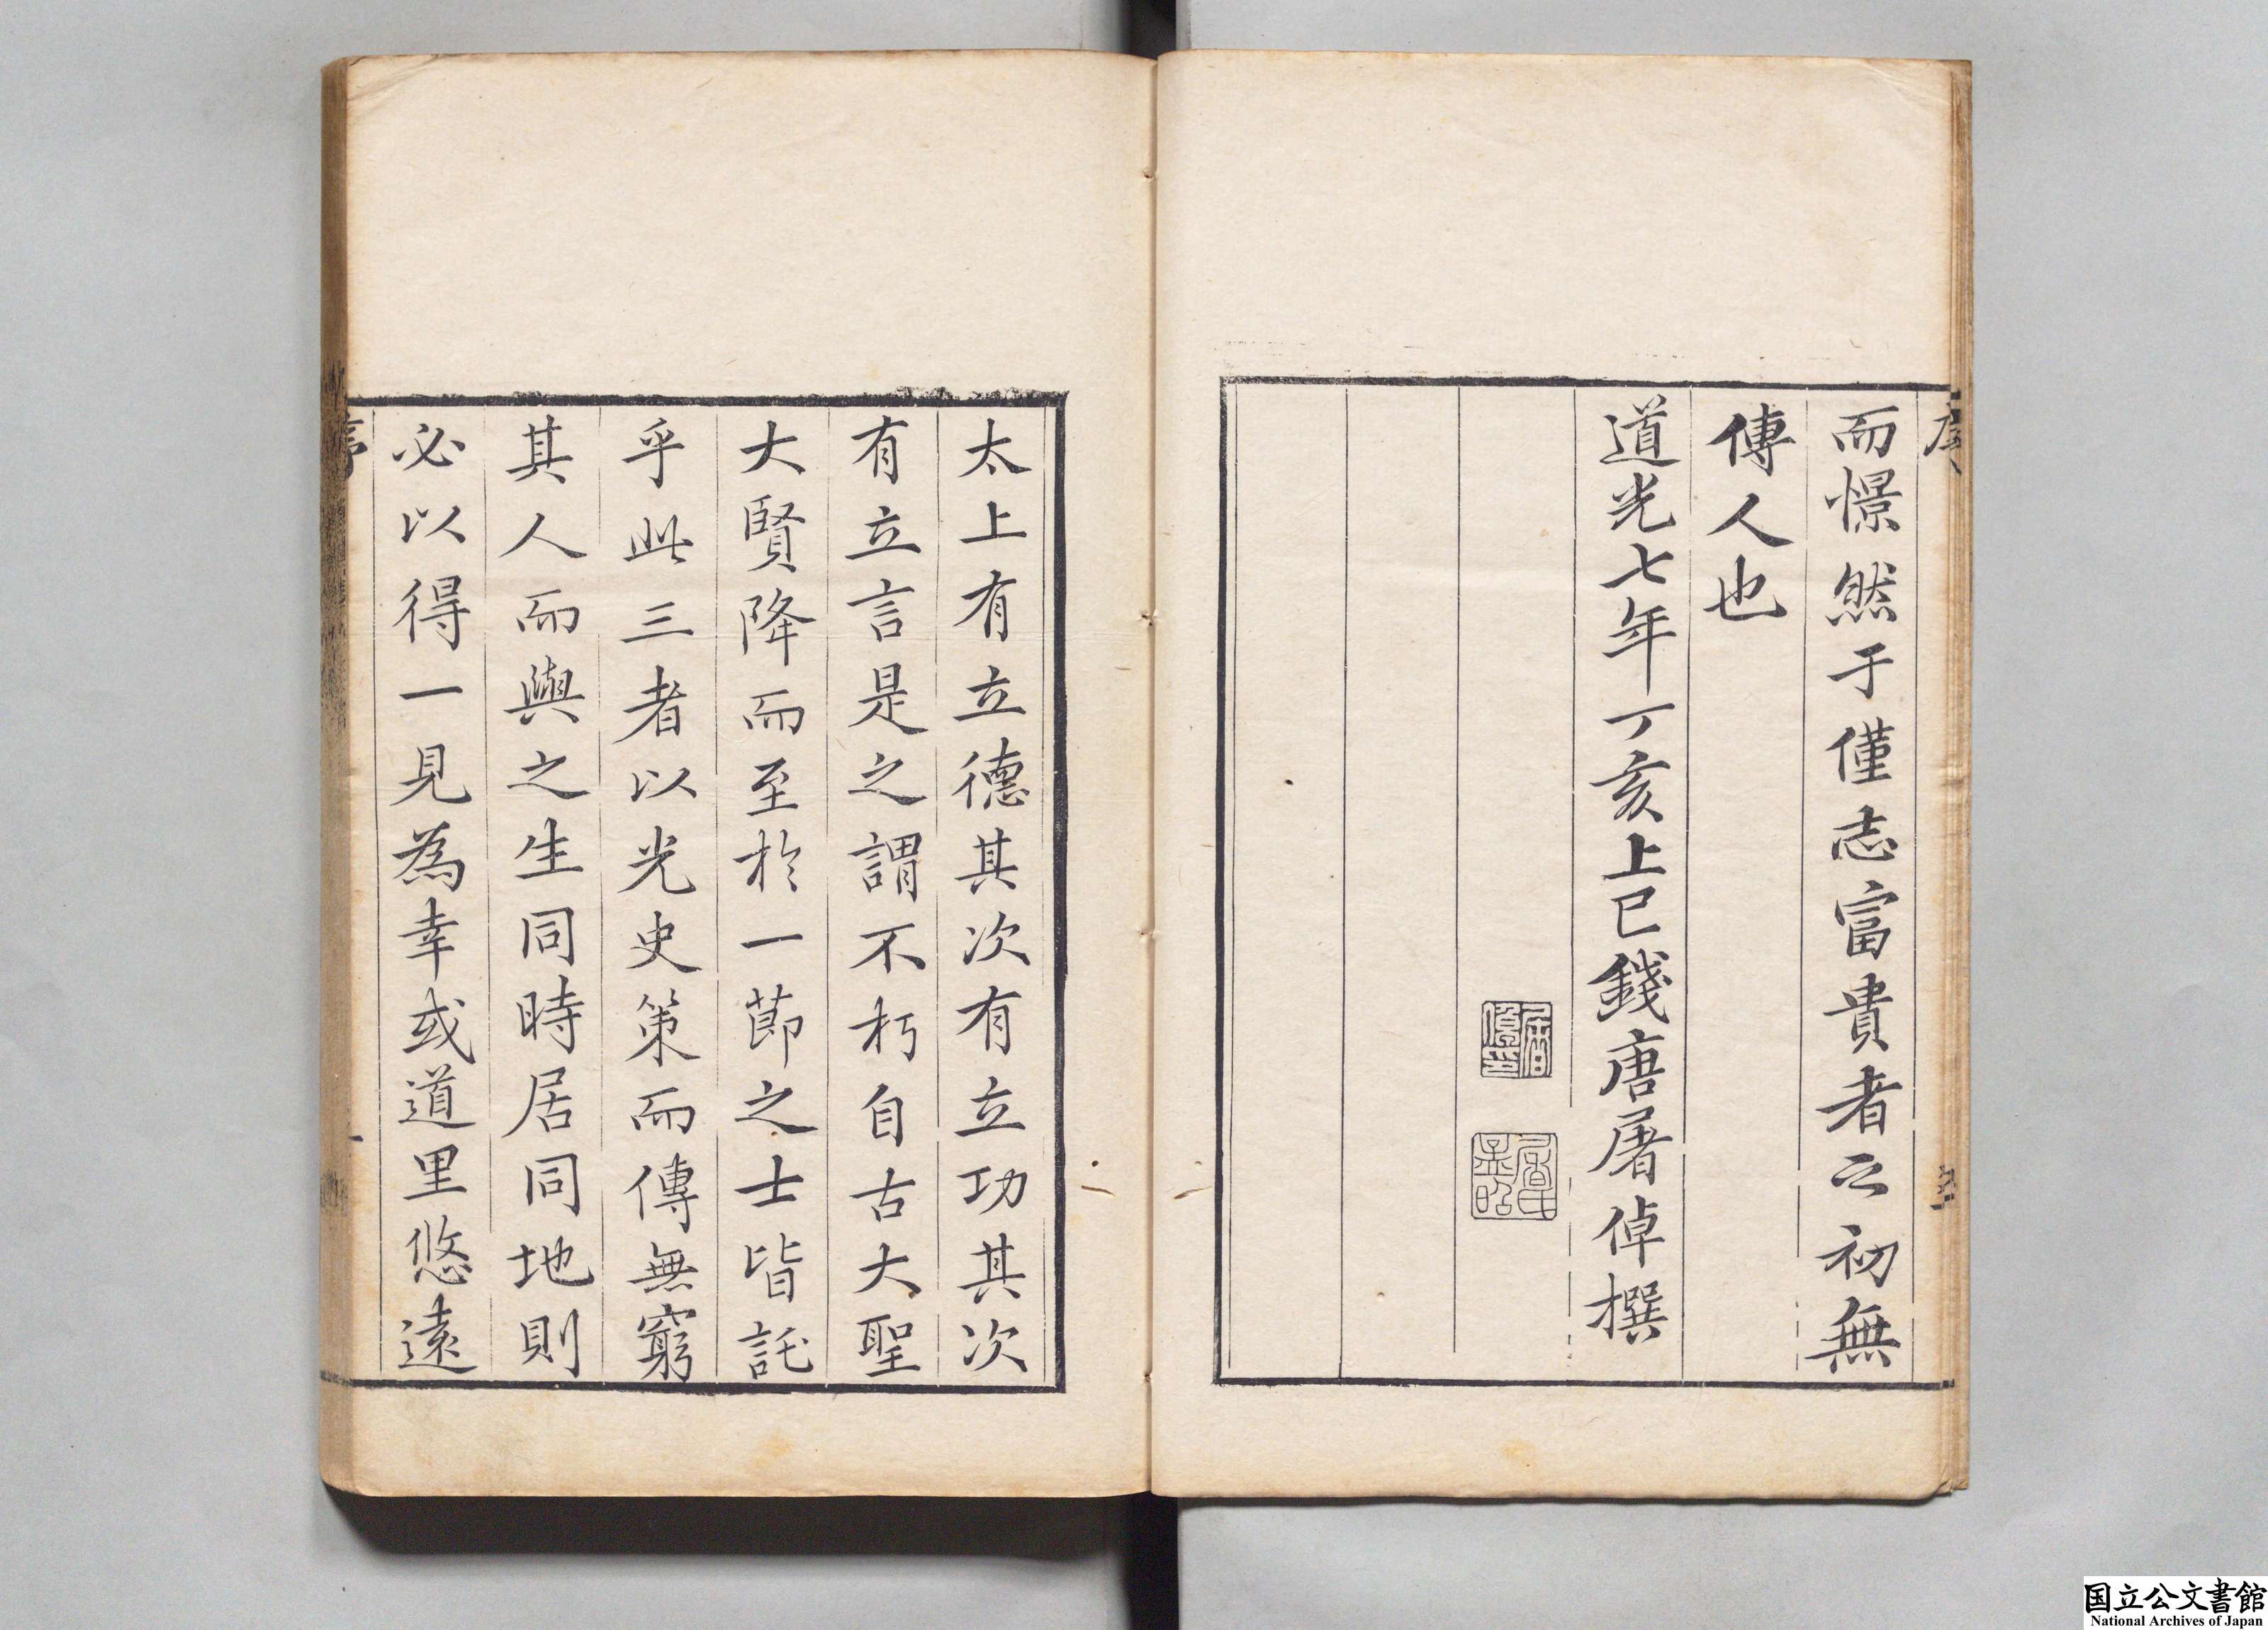 而憬然于僅志富貴者之初無
傳人也
道光七年丁亥上巳錢唐屠倬撰
屠倬印
太上有立德其次有立功其次
有立言是之謂不朽自古大聖
大賢降而至於一節之士皆託
乎此三者以光史策而傳無窮
其人而與之生同時居同地則
必以得一見為幸或道里悠遠
国立公文書館
National Archives of Japan